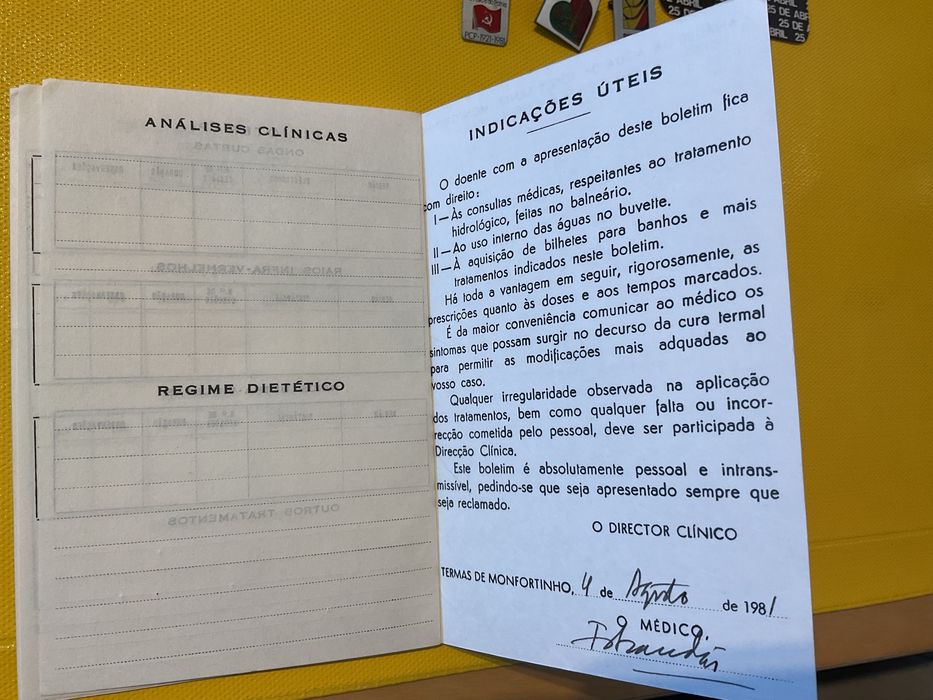 PCP-1921-1981
25 DE ABRIL
25 DE
ABRIL 25
ANÁLISES CLÍNICAS
ONDAS CURTAS
RAIOS INFRA-VERMELHOS
REGIME DIETÉTICO
OUTROS TRATAMENTOS
INDICAÇÕES ÚTEIS
O doente com a apresentação deste boletim fica
com direito:
I—Às consultas médicas, respeitantes ao tratamento
hidrológico, feitas no balneário.
II—Ao uso interno das águas no buvette.
III—À aquisição de bilhetes para banhos e mais
tratamentos indicados neste boletim.
Há toda a vantagem em seguir, rigorosamente, as
prescrições quanto às doses e aos tempos marcados.
É da maior conveniência comunicar ao médico os
sintomas que possam surgir no decurso da cura termal
para permitir as modificações mais adquadas ao
vosso caso.
Qualquer irregularidade observada na aplicação
dos tratamentos, bem como qualquer falta ou incor-
recção cometida pelo pessoal, deve ser participada à
Direcção Clínica.
Este boletim é absolutamente pessoal e intrans-
missível, pedindo-se que seja apresentado sempre que
seja reclamado.
O DIRECTOR CLÍNICO
TERMAS DE MONFORTINHO, 4 de Agosto de 1981
O MÉDICO,